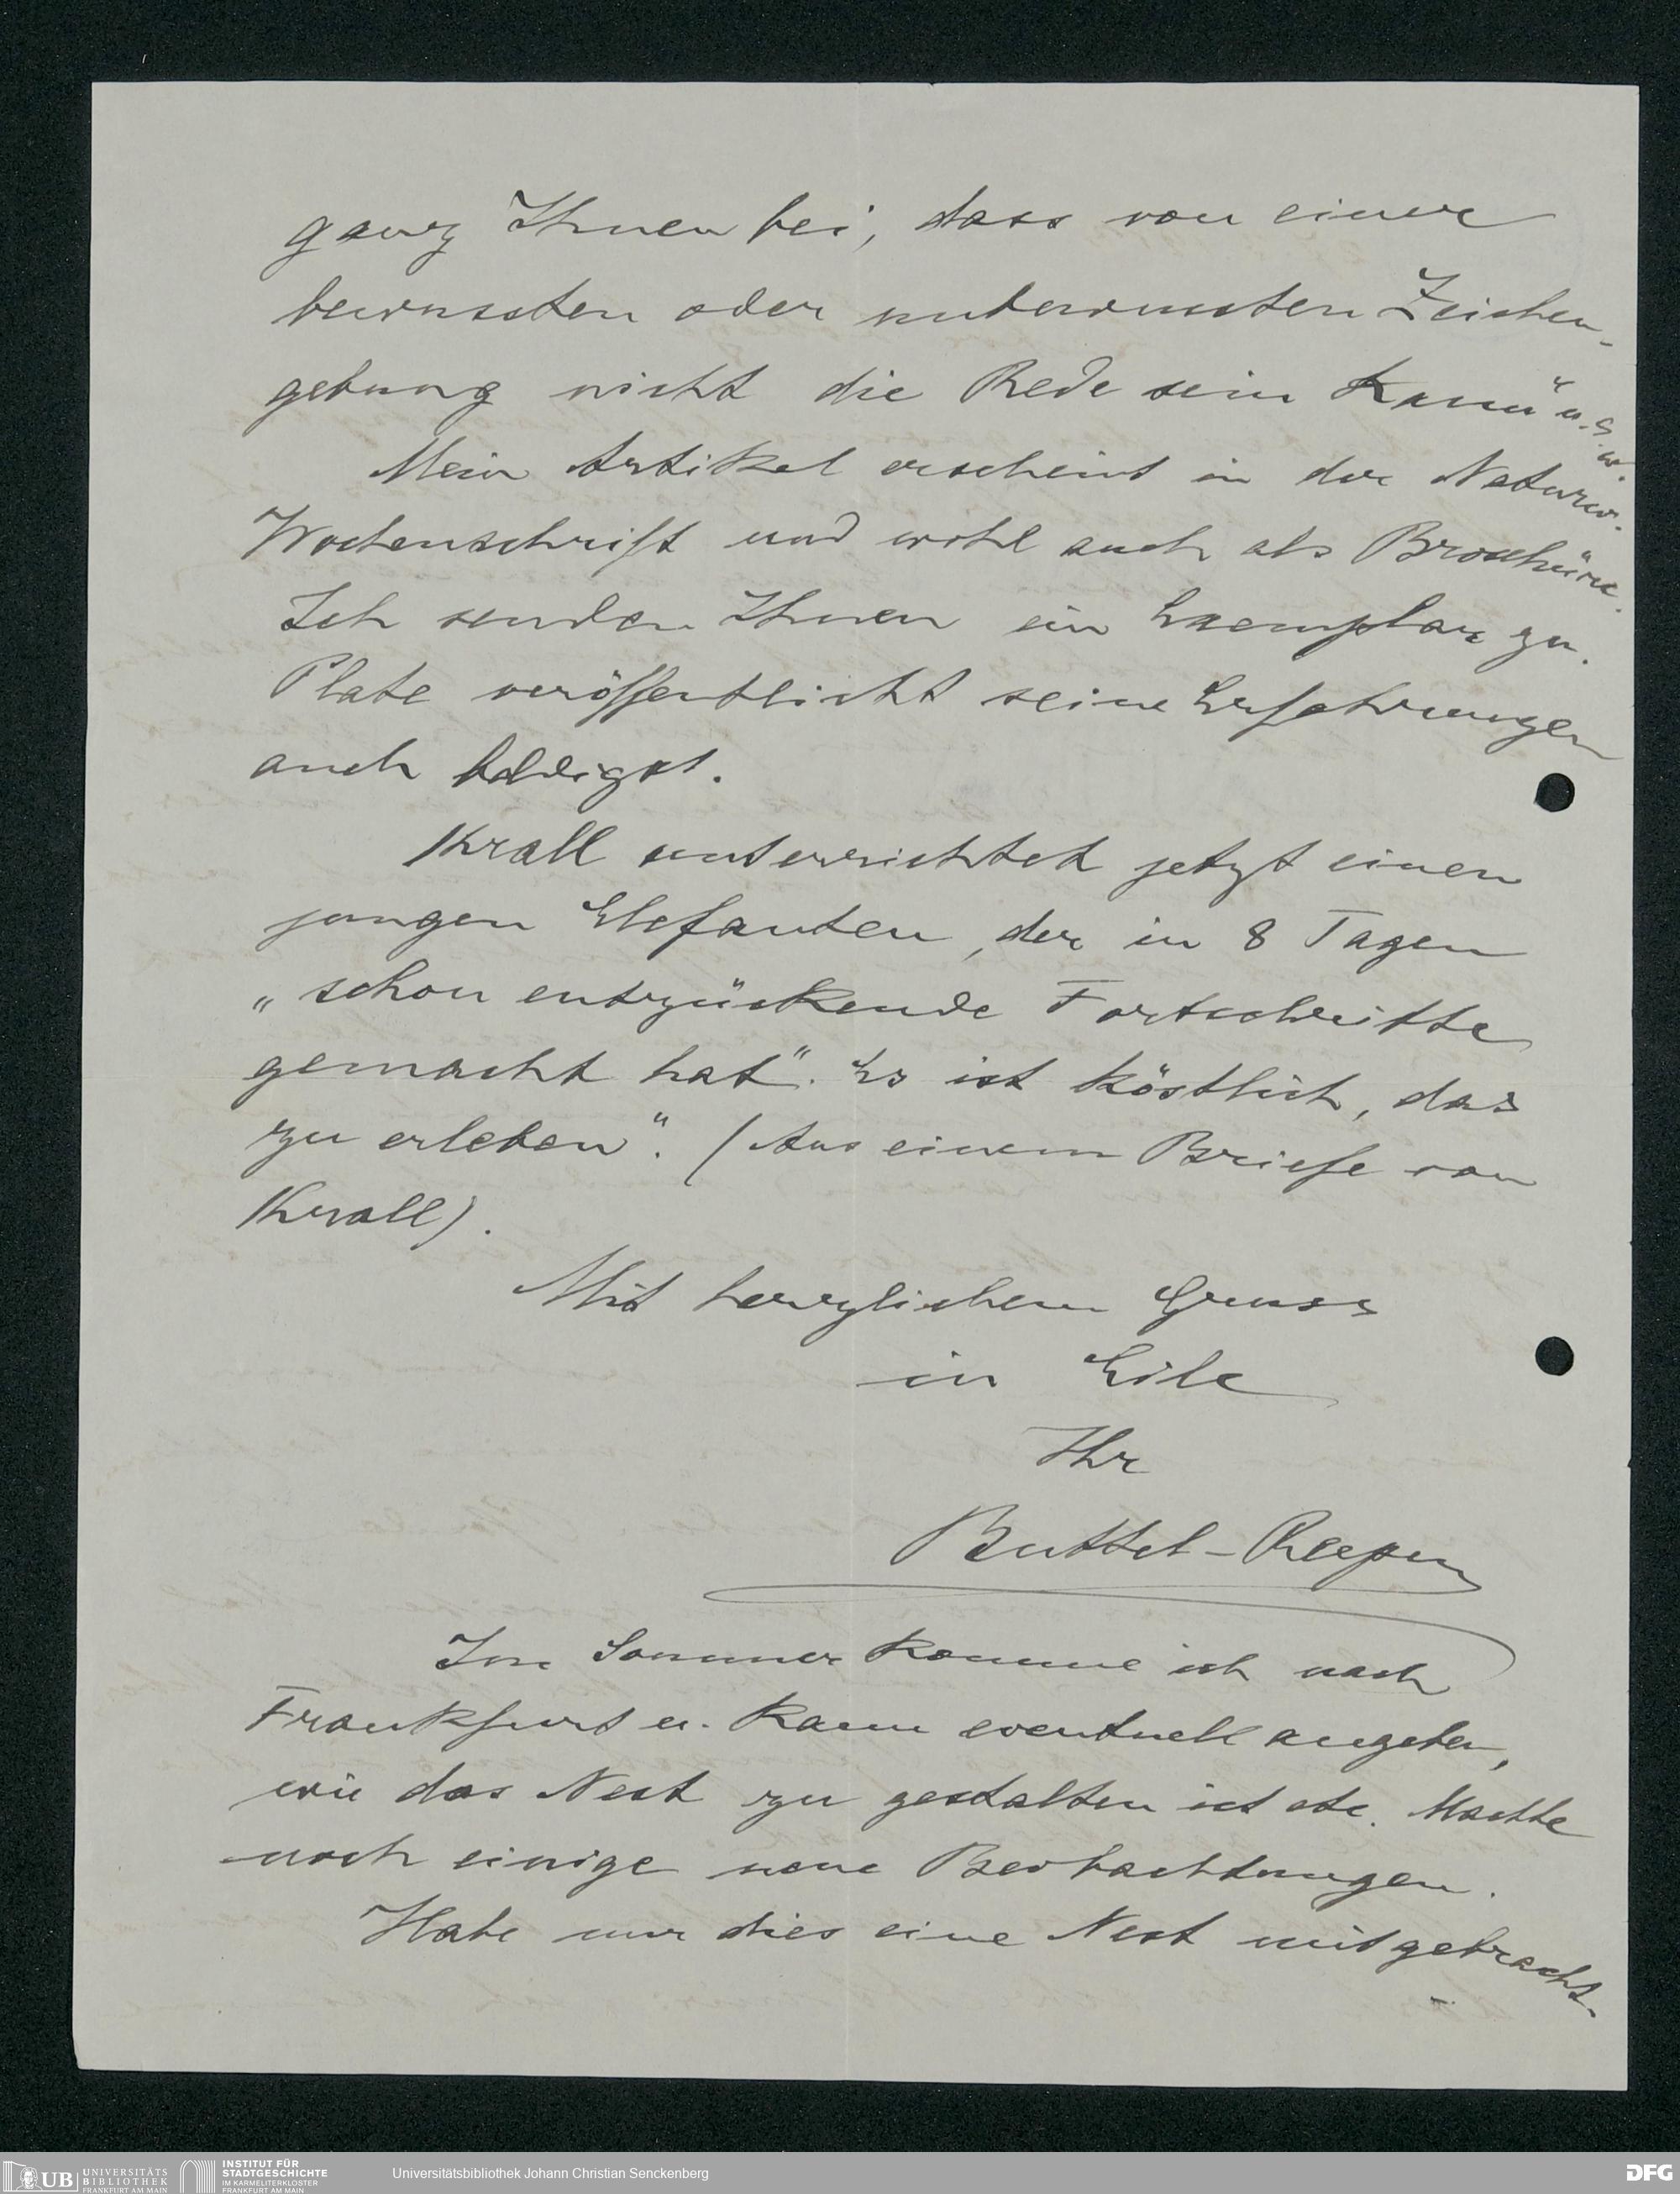 ganz Ihnen bei, dass von einer
bewussten oder unbewussten Zeichen-
gebung nicht die Rede sein kann" u.s.w.
Mein Artikel erscheint in der Naturw.
Wochenschrift und wohl auch als Broschüre.
Ich senden Ihnen ein Exemplar zu.
Plate veröffentlicht seine Erfahrungen
auch baldigst.
Krall unterrichtet jetzt einen
jungen Elefanten, der in 8 Tagen
„schon entzückende Fortschritte
gemacht hat". Es ist köstlich, das
zu erleben". (Aus einem Briefe von
Krall).
Mit herzlichem Gruss
in Eile
Ihr
Buttel-Reepen
Im Sommer komme ich nach
Frankfurt u. kann eventuell angeben,
wie das Nest zu gestalten ist etc. Machte
noch einige neue Beobachtungen.
Habe nur dies eine Nest mitgebracht.
UB UNIVERSITÄTS
BIBLIOTHEK
FRANKFURT AM MAIN
INSTITUT FÜR
STADTGESCHICHTE
IM KARMELITERKLOSTER
FRANKFURT AM MAIN
Universitätsbibliothek Johann Christian Senckenberg
DFG